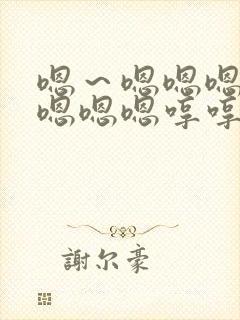 嗯～嗯嗯嗯
嗯嗯嗯哼哼
謝尔豪